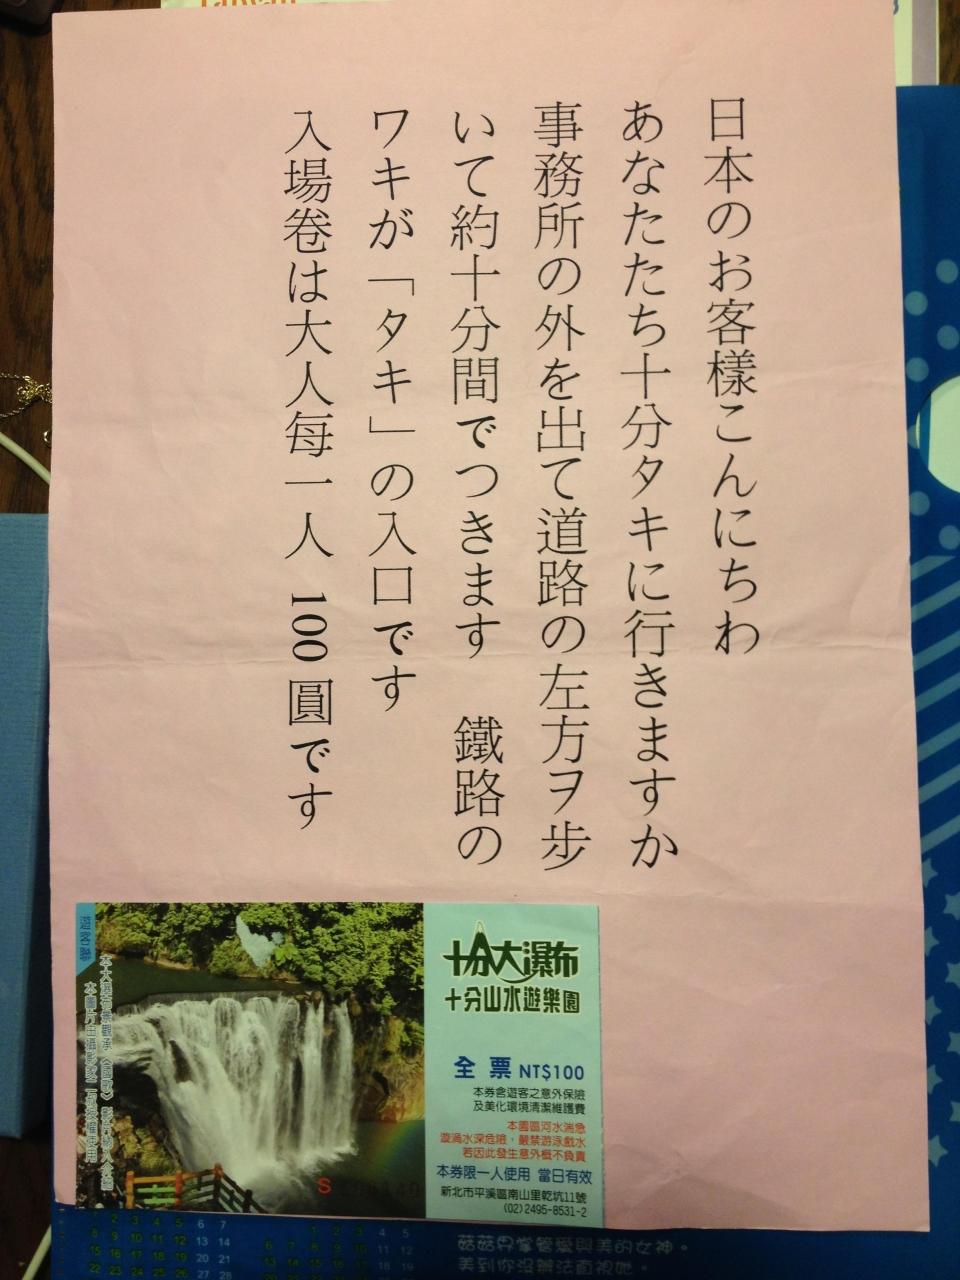 日本のお客樣こんにちわ
あなたたち十分タキに行きますか
事務所の外を出て道路の左方ヲ步
いて約十分間でつきます　鐵路の
ワキが「タキ」の入口です
入場卷は大人每一人 100 圓です
十分大瀑布
十分山水遊樂園
全 票 NT$100
本券含遊客之意外保險
及美化環境清潔維護費
本園區河水湍急
漩渦水深危險，嚴禁游泳戲水
若因此發生意外概不負責
本券限一人使用 當日有效
新北市平溪區南山里乾坑11號
(02)2495-8531-2
遊客聯
S
菇菇界掌管愛與美的女神。
美到你沒辦法直視她。